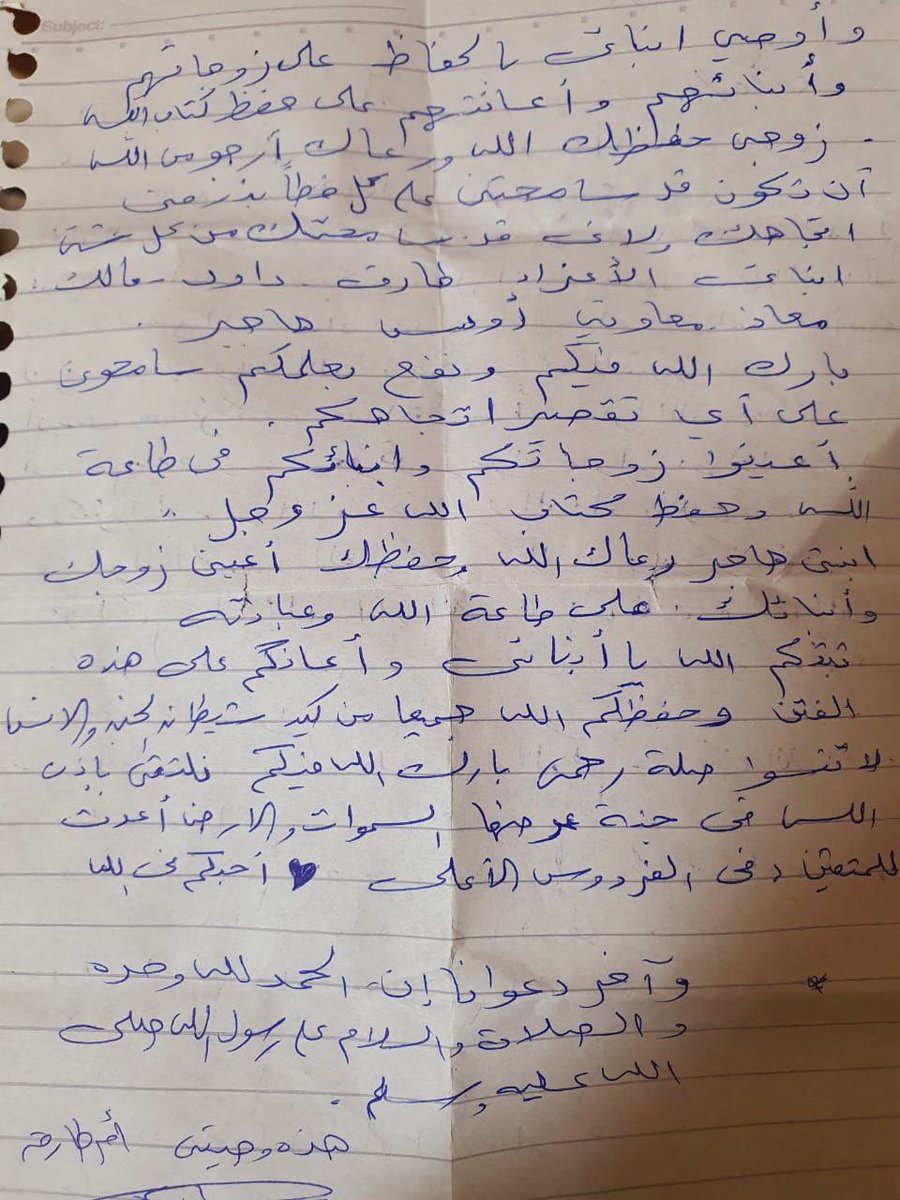 Subject:
وأوصي ابنائي بالحفاظ على زوجاتهم
وأبنائهم وأعانتهم على حفظ كتاب الله
. زوجي حفظك الله ورعاك أرجو من الله
أن تكون قد سامحتني على كل خطأ بدر مني
اتجاهك ولاني قد سامحتك من كل شئ
ابنائي الأعزاء طارق داود مالك
معاذ معاوية أويس هاجر .
بارك الله فيكم ونفع بعلمكم سامحوني
على أي تقصير اتجاهكم .
أعينوا زوجاتكم وابنائكم في طاعة
الله وحفظ كتاب الله عز وجل
ابنتي هاجر رعاك الله وحفظك أعيني زوجك
وأبنائك على طاعة الله وعبادته
ثبتكم الله يا أبنائي وأعانكم على هذه
الفتن وحفظكم الله جميعا من كيد شيطان الجن والانس
لا تنسوا صلة رحمي بارك الله فيكم فلنتقي باذن
الله في جنة عرضها السموات والارض أعدت
للمتقين وفي الفردوس الأعلى ♥ أحبكم في الله
* وآخر دعوانا إن الحمد لله وحده
والصلاة والسلام على رسول الله صلى
الله عليه وسلم .
هذه وصيتي أم طارق